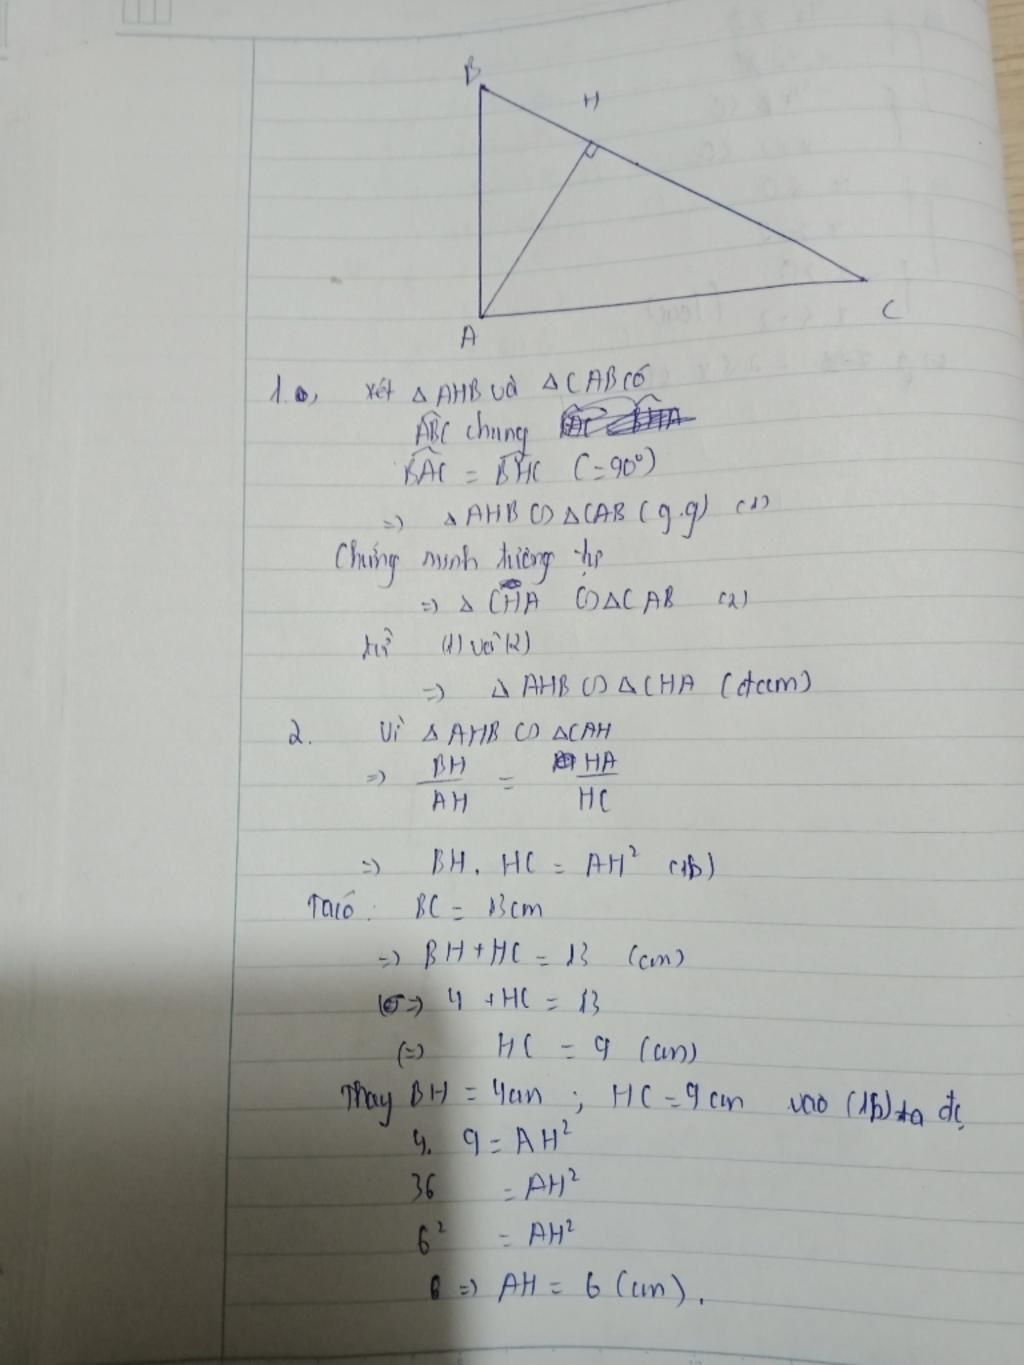 B
H
A
C
1. a, xét △ AHB và △CAB có
ABC chung
BAC = BHC (=90°)
=> △ AHB ∽ △CAB (g.g) (1)
Chứng minh tương tự
=> △ CHA ∽ △CAB (2)
từ (1) và (2)
=> △ AHB ∽ △CHA (đccm)
2. Vì △ AHB ∽ △CAH
=> BH/AH = HA/HC
=> BH . HC = AH² (1b)
Ta có : BC = 13cm
=> BH + HC = 13 (cm)
=> 4 + HC = 13
(=) HC = 9 (cm)
Thay BH = 4cm ; HC = 9 cm vao (1b) ta đc
4. 9 = AH²
36 = AH²
6² = AH²
=> AH = 6 (cm).